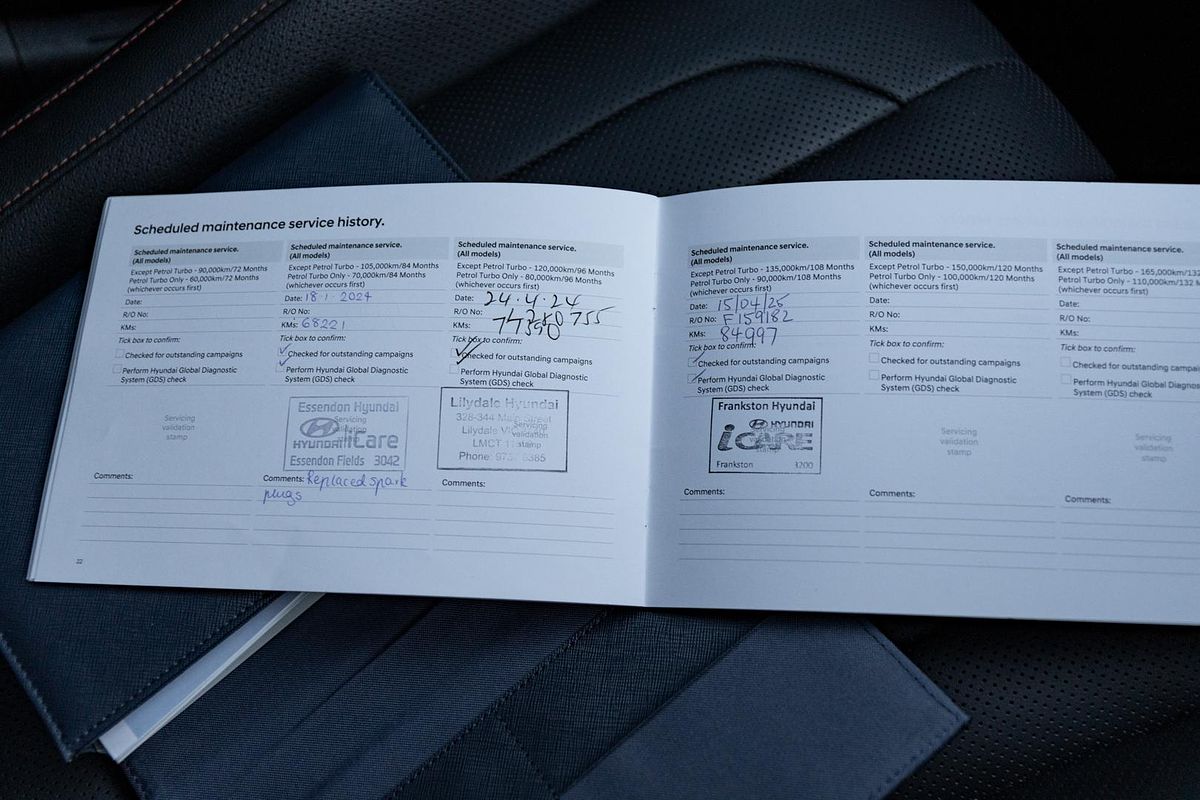 Scheduled maintenance service history.
Scheduled maintenance service.
(All models)
Except Petrol Turbo - 90,000km/72 Months
Petrol Turbo Only - 60,000km/72 Months
(whichever occurs first)
Date:
R/O No:
KMs:
Tick box to confirm:
Checked for outstanding campaigns
Perform Hyundai Global Diagnostic
System (GDS) check
Servicing
validation
stamp
Comments:
22
Scheduled maintenance service.
(All models)
Except Petrol Turbo - 105,000km/84 Months
Petrol Turbo Only - 70,000km/84 Months
(whichever occurs first)
Date: 18 1 2024
R/O No:
KMs: 68221
Tick box to confirm:
Checked for outstanding campaigns
Perform Hyundai Global Diagnostic
System (GDS) check
Essendon Hyundai
Servicing
validation
HYUNDAI iCare
Essendon Fields 3042
Comments: Replaced spark
plugs
Scheduled maintenance service.
(All models)
Except Petrol Turbo - 120,000km/96 Months
Petrol Turbo Only - 80,000km/96 Months
(whichever occurs first)
Date: 24.4.24
R/O No:
KMs:
Tick box to confirm:
Checked for outstanding campaigns
Perform Hyundai Global Diagnostic
System (GDS) check
Lilydale Hyundai
328-344 Main Street
Servicing
Lilydale
validation
LMCT
stamp
Phone: 6385
Comments:
Scheduled maintenance service.
(All models)
Except Petrol Turbo - 135,000km/108 Months
Petrol Turbo Only - 90,000km/108 Months
(whichever occurs first)
Date: 15/04/25
R/O No: F159182
KMs: 84997
Tick box to confirm:
Checked for outstanding campaigns
Perform Hyundai Global Diagnostic
System (GDS) check
Frankston Hyundai
HYUNDAI
iCARE
Frankston 3200
Comments:
Scheduled maintenance service.
(All models)
Except Petrol Turbo - 150,000km/120 Months
Petrol Turbo Only - 100,000km/120 Months
(whichever occurs first)
Date:
R/O No:
KMs:
Tick box to confirm:
Checked for outstanding campaigns
Perform Hyundai Global Diagnostic
System (GDS) check
Servicing
validation
stamp
Comments:
Scheduled maintenance service.
(All models)
Except Petrol Turbo - 165,000km/132
Petrol Turbo Only - 110,000km/132 M
(whichever occurs first)
Date:
R/O No:
KMs:
Tick box to confirm:
Checked for outstanding
Perform Hyundai Global
System (GDS) check
Servicing
validation
stamp
Comments: